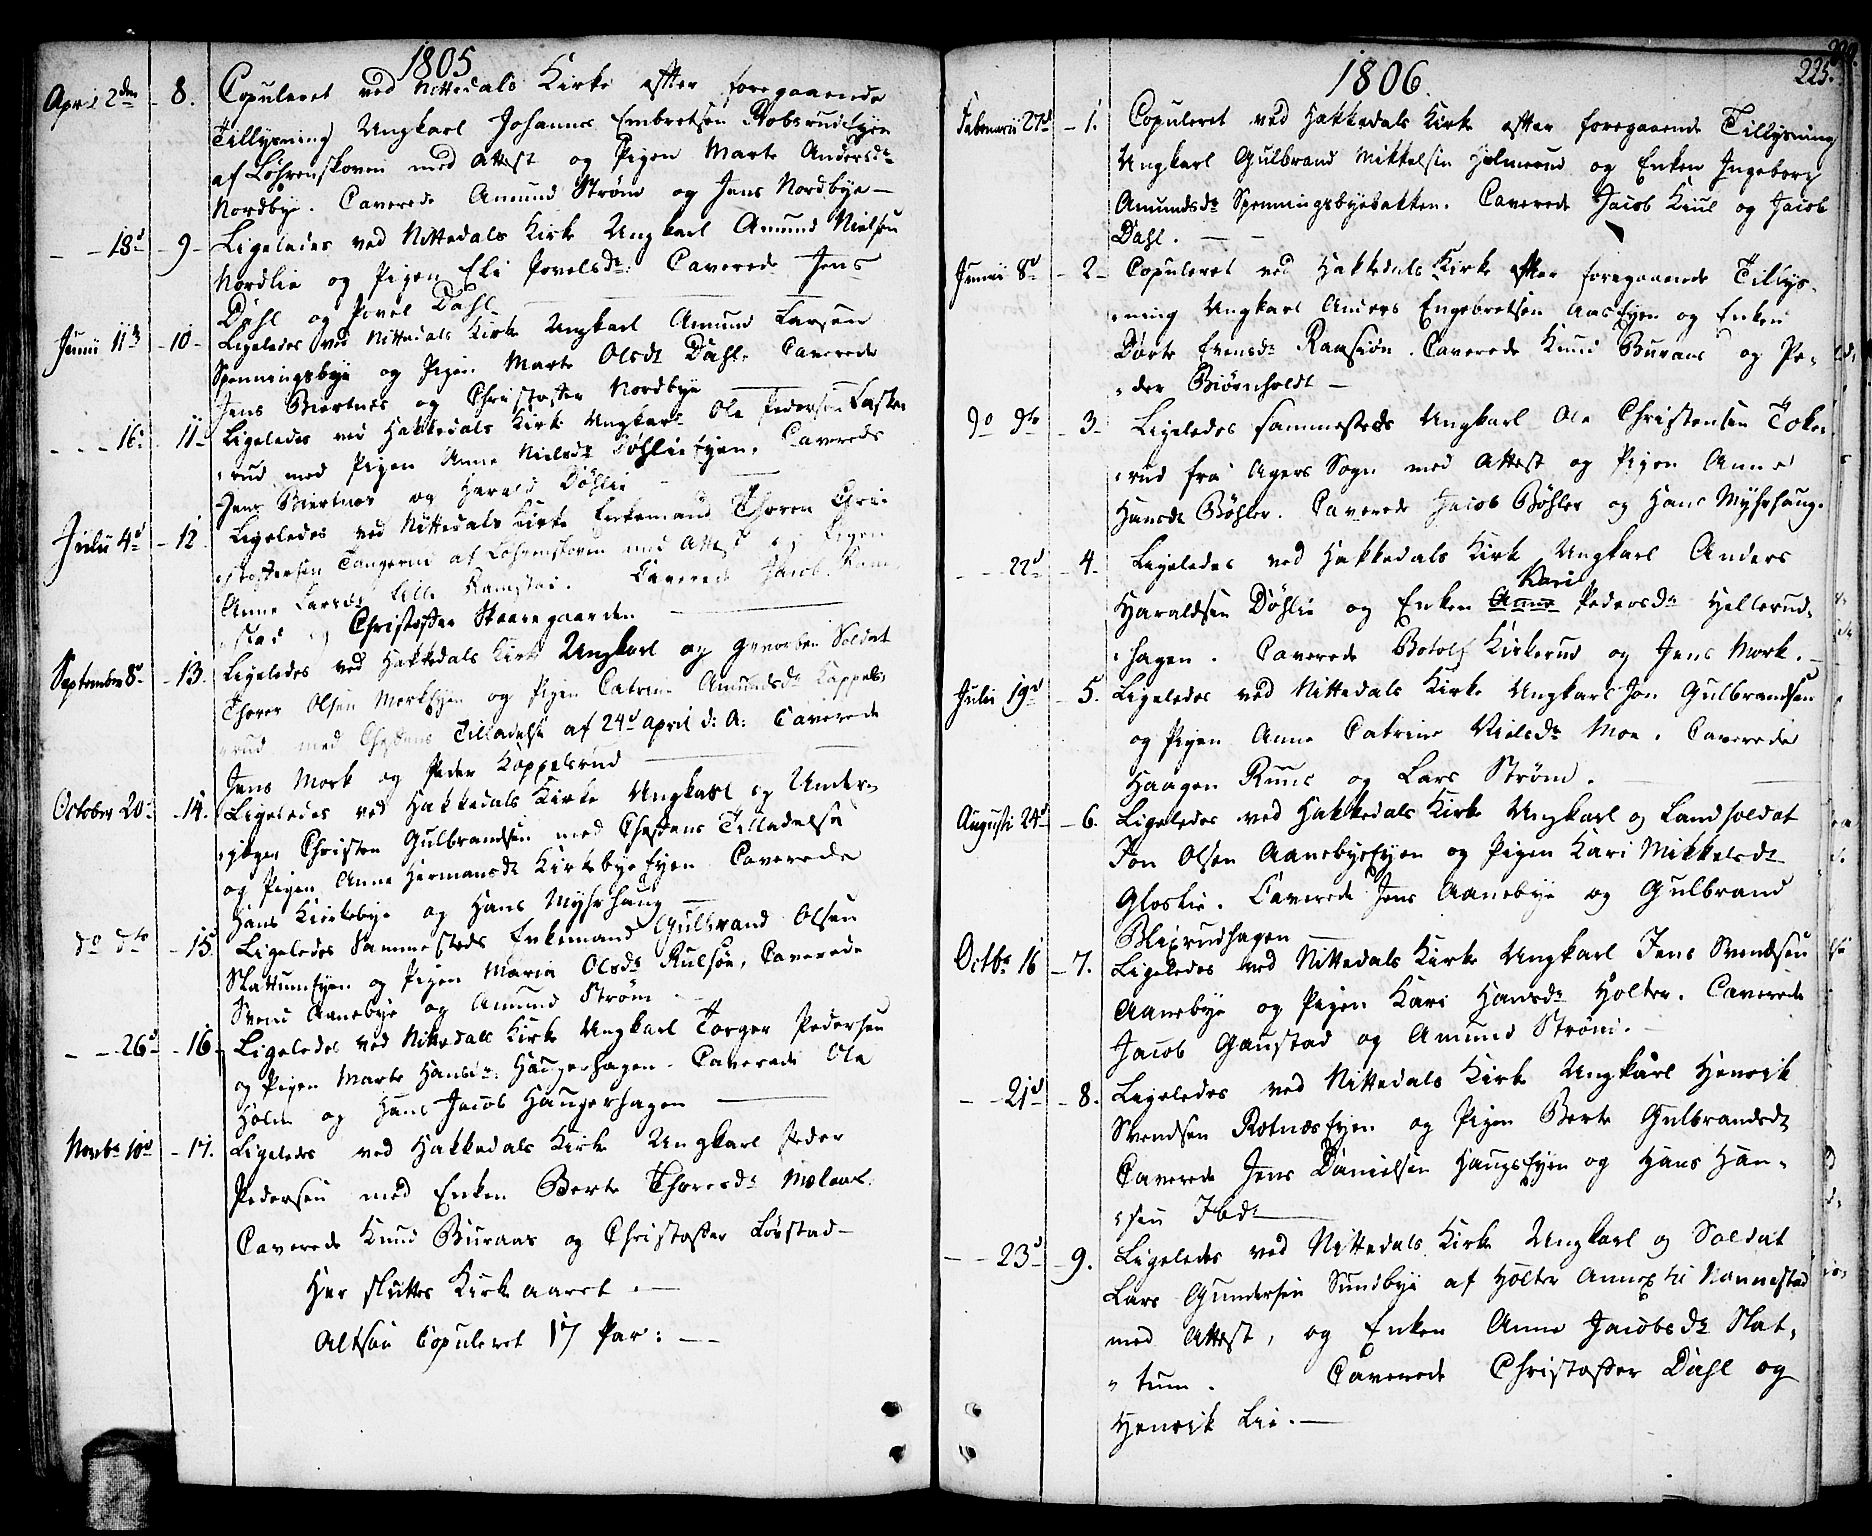 1805
Apri 2den - 8. Copuleret ved Nittedals Kirke efter foregaaende
Tillysning Ungkarl Johannes Embretsen Robsrudeyen
af Løhrenskoven med Attest og Pigen Marte Andersdr
Nordbye. Caverede Amund Strøm og Jens Nordbye -
- - 18d - 9 - Ligeledes ved Nittedals Kirke Ungkarl Amund Nielsen
Nordlie og Pigen Eli Povelsdr: Caverede Jens
Dahl og Povel Dahl
Junii 11d - 10 - Ligeledes ved Nittedals Kirke Ungkarl Amund Larsen
Spenningsbye og Pigen Marte Olsdr Dahl. Caverede
Jens Biertnes og Christoffer Nordbye
- - - 16d - 11 - Ligeledes ved Hakkedals Kirke Ungkarl Ole Pedersen Laske
"rud med Pigen Anne Nielsdr Døhlieeyen. Caverede
Jens Biertnes og Harald Døhlie
Julii 4d - 12 Ligeledes ved Nittedals Kirke Enkemand Thoren Chri-
"stoffersen Tangerud af Løhrenskoven med Attest og Pigen
Anne Larsdr Lille Ramstad. Caverede Jacob Ram
"stad og Christoffer Skaaregaarden
September 8d - 13. Ligeledes ved Hakkedals Kirke Ungkarl og geworben Soldat
Thorer Olsen Morkeyen og Pigen Catrine Amundsdr Kappels-
"rud med Chefens Tilladelse af 24d April d: A: Caverede
Jens Mork og Peder Kappelsrud
October 20d - 14. Ligeledes ved Hakkedals Kirke Ungkarl og Under-
"jæger Christen Gulbrandsen med Chefens Tilladelse
og Pigen Anne Hermansdr Kirkebyeeyen Caverede
Hans Kirkebye og Hans Myhrhaug
do dto - 15. Ligeledes Sammesteds Enkemand Gulbrand Olsen
Slattumeyen og Pigen Maria Olsdr Rulsøe, Caverede
Svend Aanebye og Amund Strøm
- - 26d - 16. Ligeledes ved Nittedals Kirke Ungkarl Torger Pedersen
og Pigen Marte Hansdr: Haugerhagen. Caverede Ole
Holm og Hans Jacob Haugerhagen
Novbr 10d - 17. Ligeledes ved Hakkedals Kirke Ungkarl Peder
Pedersen med Enken Berte Thoresdr Mølaas.
Caverede Knud Buraas og Christoffer Løvstad -
Her sluttes Kirkeaaret. -
Altsaa Copuleret 17 Par: - -
1806.
225.
Februarii 27d - 1. Copuleret ved Hakkedals Kirke efter foregaaende Tillysning
Ungkarl Gulbrand Mikkelsen Holmerud og Enken Ingeborg
Amundsdr Spenningsbyebakken. Caverede Jacob Kiul og Jacob
Dahl. - -
Junii 8d - 2 - Copuleret ved Hakkedals Kirke efter foregaaende Tillys-
"ning Ungkarl Anders Engebretsen Aaseyen og Enken
Dorte Evensdr Raasiøn. Caverede Knud Buraas og Pe-
"der Biørnholdt -
do dto - 3 - Ligeledes Sammesteds Ungkarl Ole Christensen Toke-
"rud fra Agers Sogn med Attest og Pigen Anne
Hansdr Bøhler. Caverede Jacob Bøhler og Hans Myhrhaug.
- - 22d - 4 - Ligeledes ved Hakkedals Kirke Ungkarl Anders
Haraldsen Døhlie og Enken Anne Kari Pedersdr Hellerud-
"hagen. Caverede Botolf Kirkerud og Jens Mork. -
Julii 19d - 5. Ligeledes ved Nittedals Kirke Ungkarl Jon Gulbrandsen
og Pigen Anne Catrine Nielsdr Moe. Caverede
Haagen Ruud og Lars Strøm.
Augusti 24d - 6. Ligeledes ved Hakkedals Kirke Ungkarl og Landsoldat
Jon Olsen Aanebyeeyen og Pigen Kari Mikkelsdr
Gloslie. Caverede Jens Aanebye og Gulbrand
Blixrudhagen
Octbr 16 - 7. Ligeledes ved Nittedals Kirke Ungkarl Jens Svendsen
Aanebye og Pigen Kari Hansdr Holter. Caverede
Jacob Gaustad og Amund Strøm. -
- - 21d - 8. Ligeledes ved Nittedals Kirke Ungkarl Henrik
Svendsen Rotnæseyen og Pigen Berte Gulbrandsdr
Caverede Jens Danielsen Haugseyen og Hans Han-
"sen Ibdr
- - 23d - 9. Ligeledes ved Nittedals Kirke Ungkarl og Soldat
Lars Gundersen Sundbye af Holter Annex til Nannestad
med Attest, og Enken Anne Jacobsdr Slat-
"tum. Caverede Christoffer Dahl og
Henrik Lie. -